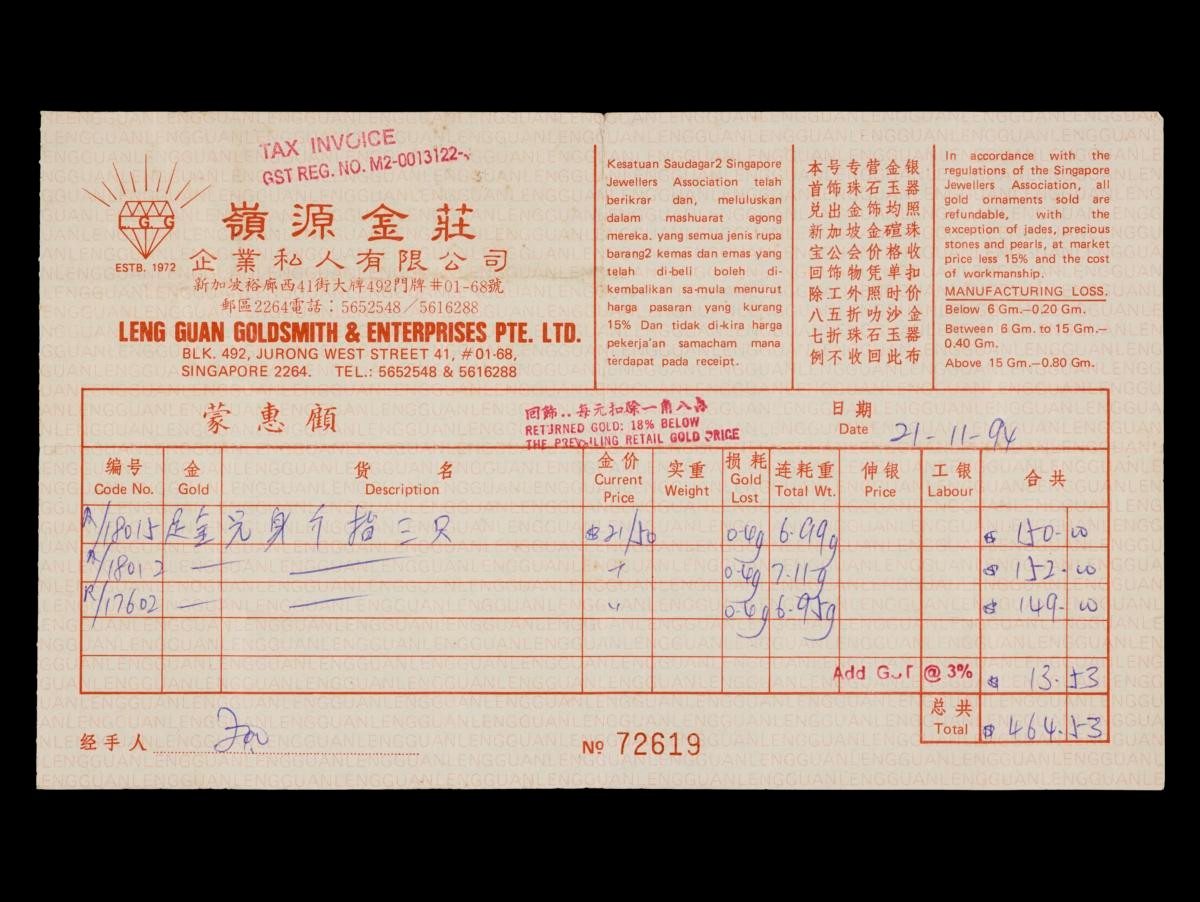 TAX INVOICE
GST REG. NO. M2-0013122-
L G G
ESTB. 1972
嶺源金莊
企業私人有限公司
新加坡裕廊西41街大牌492門牌#01-68號
郵區2264電話：5652548／5616288
LENG GUAN GOLDSMITH & ENTERPRISES PTE. LTD.
BLK. 492, JURONG WEST STREET 41, #01-68,
SINGAPORE 2264. TEL.: 5652548 & 5616288
Kesatuan Saudagar2 Singapore
Jewellers Association telah
berikrar dan, meluluskan
dalam mashuarat agong
mereka. yang semua jenis rupa
barang2 kemas dan emas yang
telah di-beli boleh di-
kembalikan sa-mula menurut
harga pasaran yang kurang
15% Dan tidak di-kira harga
pekerja'an samacham mana
terdapat pada receipt.
本号专营金银
首饰珠石玉器
兑出金饰均照
新加坡金碹珠
宝公会价格收
回饰物凭单扣
除工外照时价
八五折叻沙金
七折珠石玉器
例不收回此布
In accordance with the
regulations of the Singapore
Jewellers Association, all
gold ornaments sold are
refundable, with the
exception of jades, precious
stones and pearls, at market
price less 15% and the cost
of workmanship.
MANUFACTURING LOSS.
Below 6 Gm.—0.20 Gm.
Between 6 Gm. to 15 Gm.—
0.40 Gm.
Above 15 Gm.—0.80 Gm.
蒙惠顧
回飾..每元扣除一角八点
RETURNED GOLD: 18% BELOW
THE PREVAILING RETAIL GOLD PRICE
日期
Date 21-11-94
编号 金 货名 金价 实重 损耗 连耗重 伸银 工银 合共
Code No. Gold Description Current Price Weight Gold Lost Total Wt. Price Labour
R/18015 足金元身介指三只 $21/50 0.4g 6.99g $ 150.00
R/18012 0.4g 7.11g $ 152.00
R/17602 0.4g 6.95g $ 149.00
Add GST @ 3% $ 13.53
总共
Total $ 464.53
经手人
No 72619